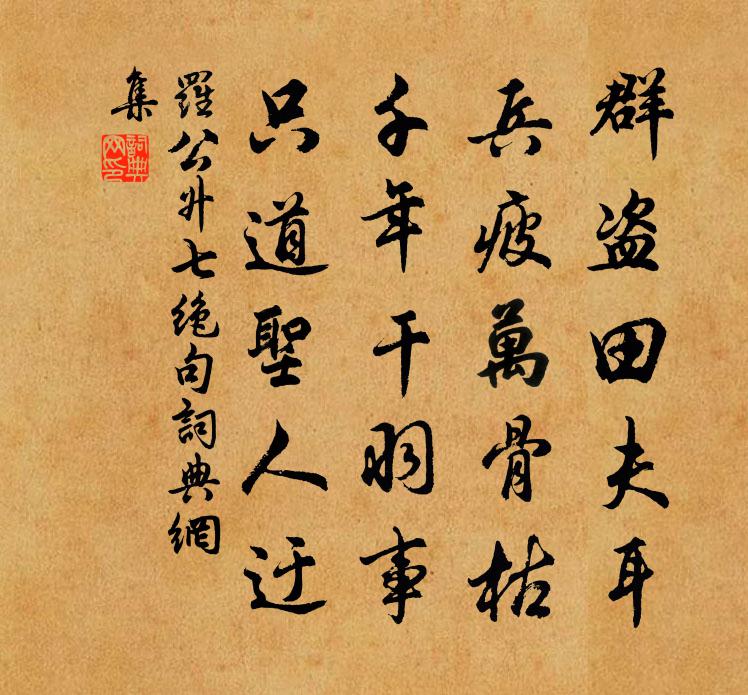 群盗田夫耳
兵疲萬骨枯
千年干羽事
只道聖人迂
羅公升七絶句詞典網
集
詞典
网印